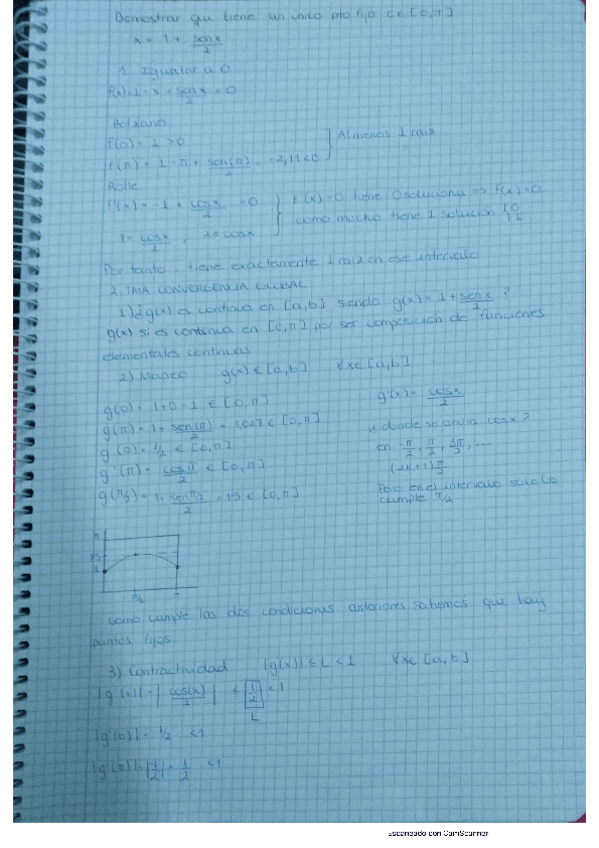 Demostrar que tiene un único pto fijo c∈[0,π]
x = 1 + senx/2
1. Igualar a 0
f(x)=1-x+senx/2=0
Bolzano
f(0)=1>0
f(π)=1-π+sen(π)/2=-2,11<0 } Al menos 1 raíz
Rolle
f'(x)=-1+cosx/2=0 } f'(x)=0 tiene 0 soluciones => f(x)=0
1=cosx/2, 2=cosx como mucho tiene 1 solución
Por tanto, tiene exactamente 1 raíz en ese intervalo
2. TMA CONVERGENCIA GLOBAL
1) ¿g(x) es continua en [a,b] siendo g(x)=1+senx/2?
g(x) si es continua en [0,π] por ser composición de funciones
elementales continuas
2) Mapeo g(x)∈[a,b] ∀x∈[a,b]
g(0)=1+0=1∈[0,π] g'(x)=cosx/2
g(π)=1+sen(π)/2=1,027∈[0,π] ¿donde se anula cosx?
g'(0)=1/2∈[0,π] en -π/2, π/2, 3π/2, ...
g'(π)=cosπ/2∈[0,π] (2k+1)π/2
g(π/2)=1+senπ/2/2=1,5∈[0,π] Pero en el intervalo solo lo
cumple π/2
π
1,5
1
π/2 π
como cumple las dos condiciones anteriores sabemos que hay
puntos fijos
3) Contractividad |g'(x)|≤L<1 ∀x∈[a,b]
|g'(x)|=|cos(x)/2|≤1/2<1
L
|g'(0)|=1/2<1
=1/2 <1
Escaneado con CamScanner